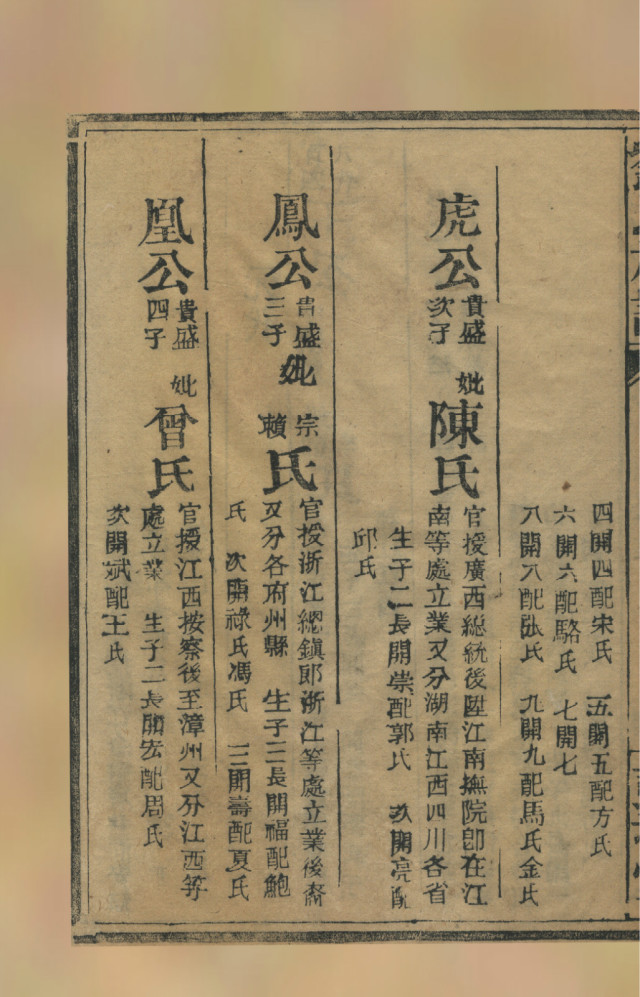 四開四配宋氏 五開五配方氏
六開六配駱氏 七開七
八開八配張氏 九開九配馬氏金氏
虎公
貴盛
次子
妣
陳氏
官授廣西總統後陞江南撫院卽在江
南等處立業又分湖南江西四川各省
生子二長開崇配郭氏 次開亮配
邱氏
鳳公
貴盛
三子
妣
宗
賴
氏
官授浙江總鎮郎浙江等處立業後裔
又分各府州縣 生子三長開福配鮑
氏 次開祿氏馮氏 三開壽配夏氏
凰公
貴盛
四子
妣
曾氏
官授江西按察後至漳州又分江西等
處立業 生子二長開宏配周氏
次開斌配王氏